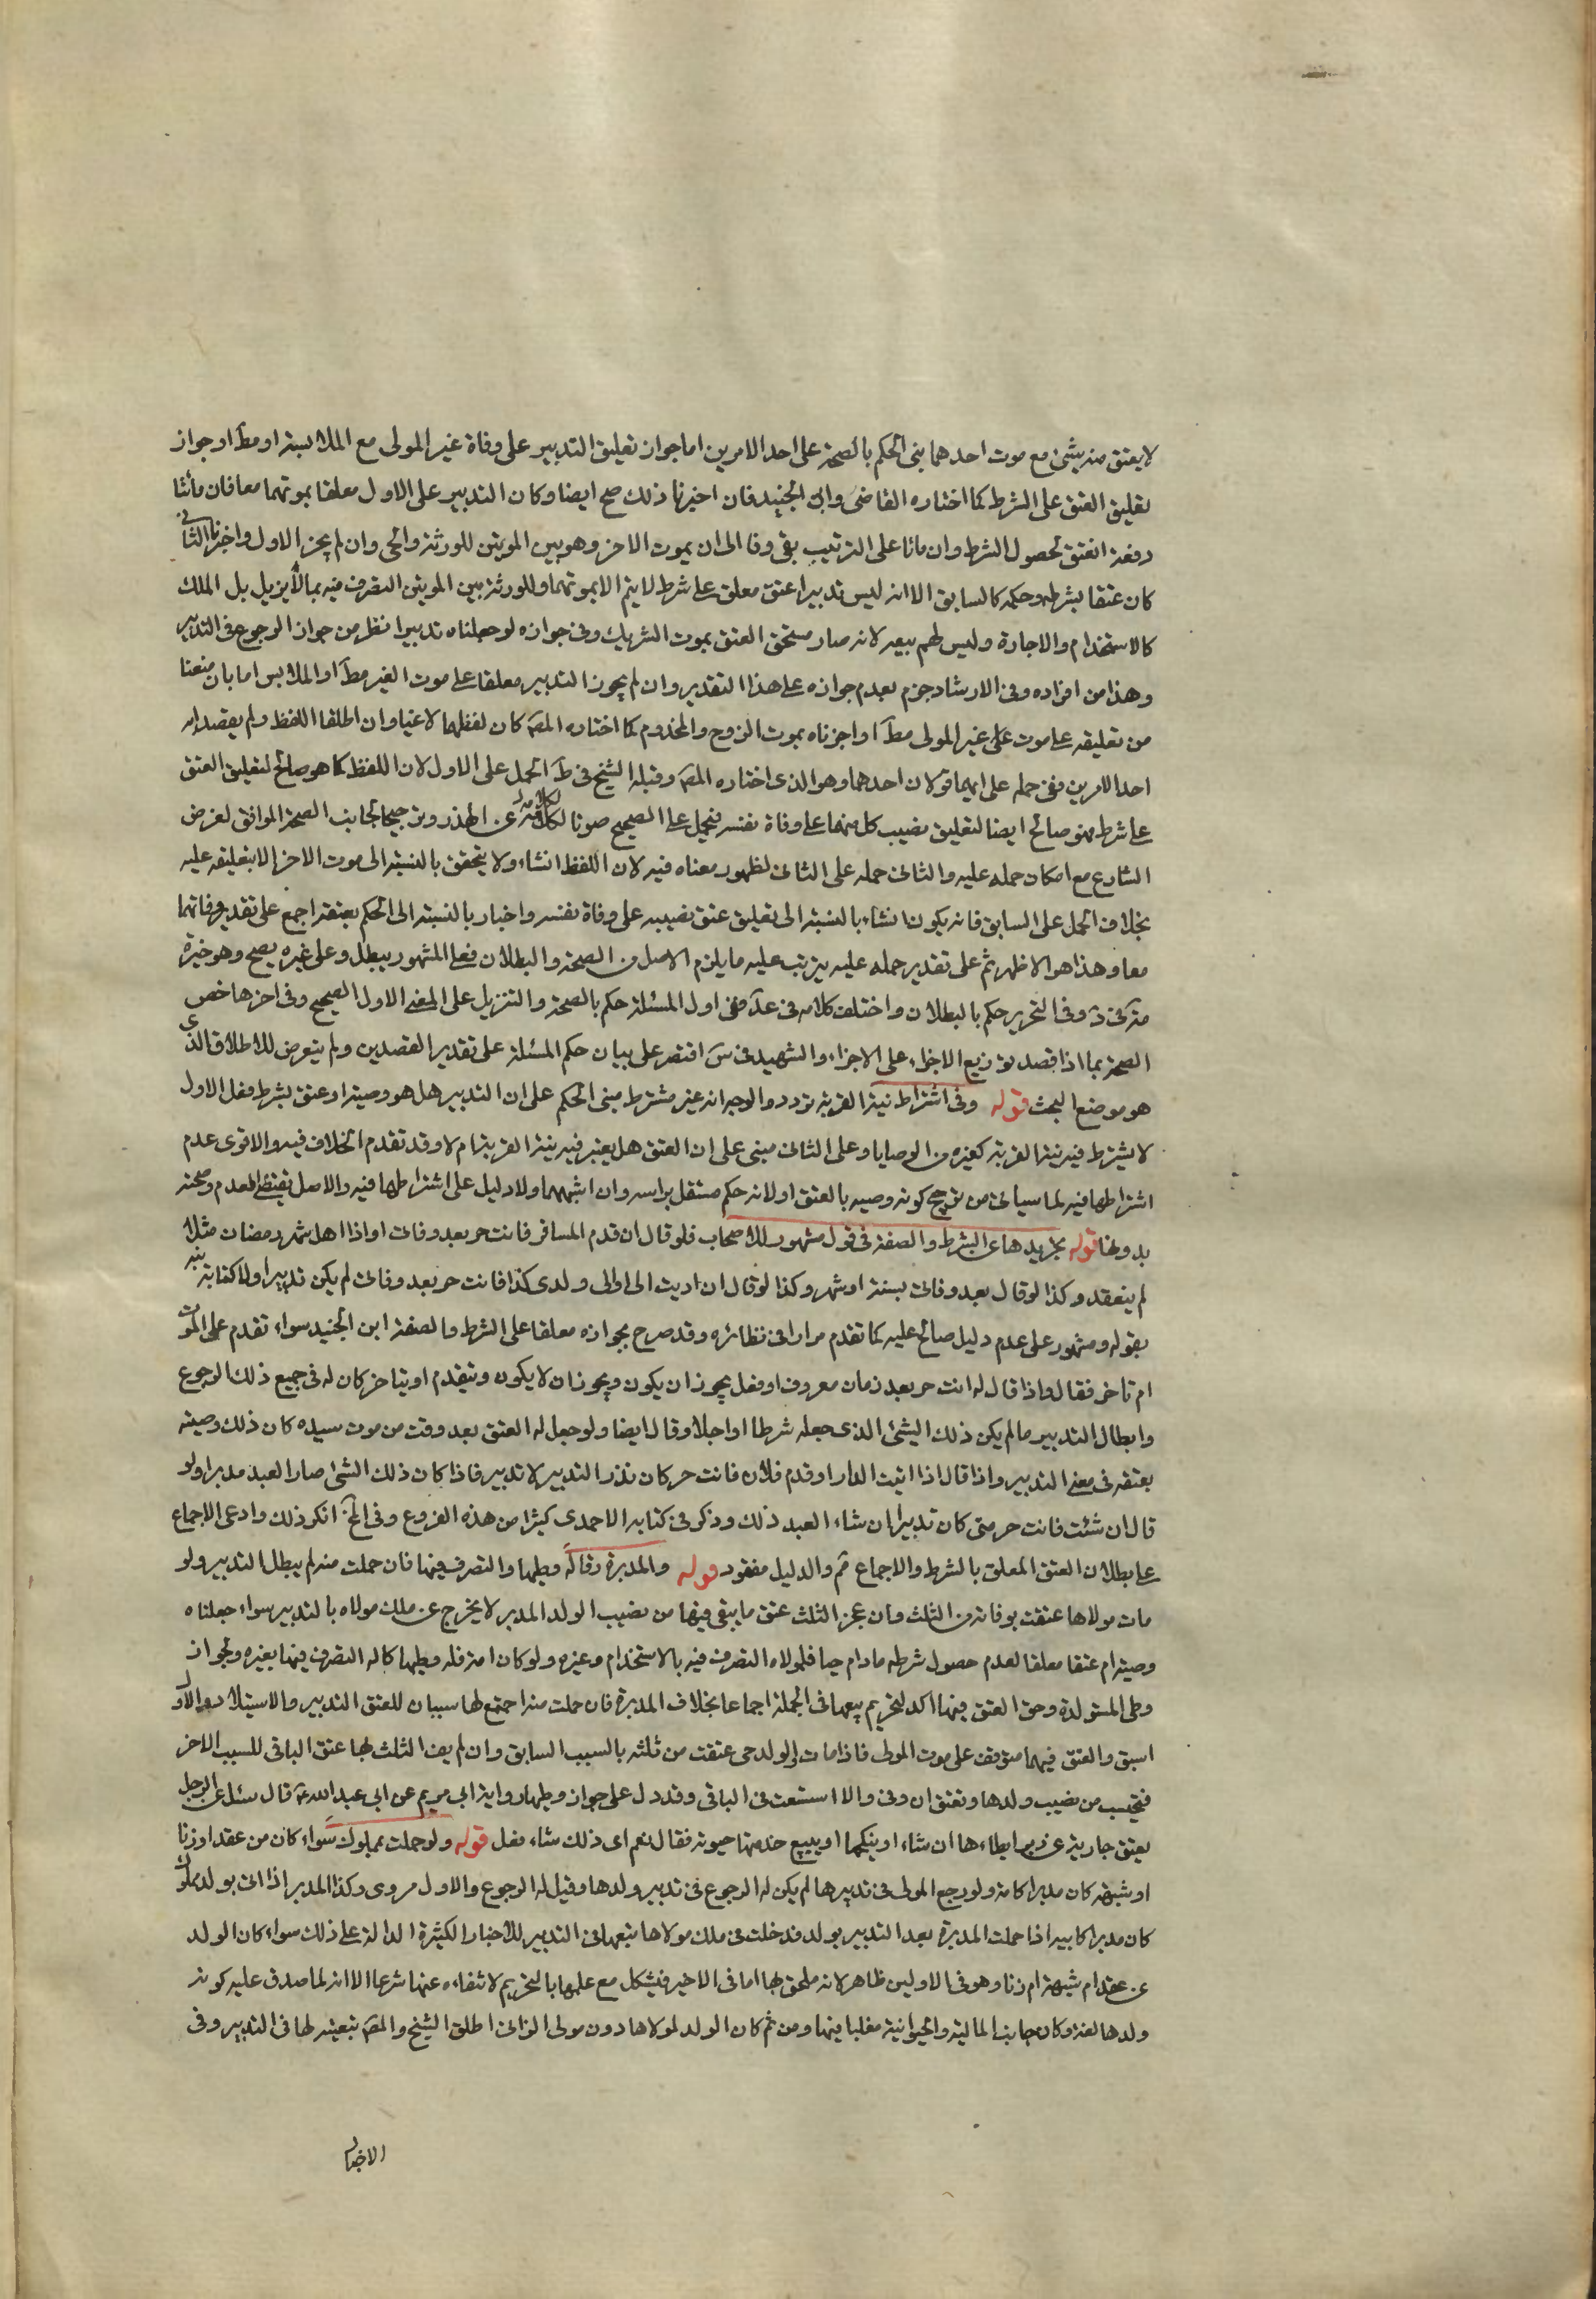 لا يعتق منه شئ مع موت احدهما بنى الحكم بالصحة على احد الامرين اما جواز تعليق التدبير على وفاة غير المولى مع الملابسة او مط او جواز
تعليق العتق على الشرط كما اختاره القاضى وابن الجنيد فان اخيرنا ذلك صح ايضا وكان التدبير على الاول معلقا بموتهما معا فان ماتتا
دفعة انعتق لحصول الشرط وان ماتا على الترتيب بقى وفا الى ان يموت الاخر وهو بين الموتين للورثة والحى وان لم يجز الاول واجزنا الثانى
كان عتقا بشرطه وحكمه كالسابق الا انه ليس تدبيرا عتق معلق على شرط لا يتم الا بموتهما وللورثة بين الموتين التصرف فيه بما لا يزيل بل الملك
كالاستخدام والاجارة وليس لهم بيعه لانه صار مستحق العتق بموت الشريك وفى جوازه لو جعلناه تدبيرا نظر من جواز الرجوع فى التدبير
وهذا من افراده وفى الارشاد جزم بعدم جوازه على هذا التقدير وان لم يجوز التدبير معلقا على موت الغير مط او الملابس اما بان منعنا
من تعليقه على موت على غير المولى مط او اجزناه بموت الزوج والمخدوم كما اختاره المص كان لفظهما لاغيا وان اطلقا اللفظ ولم يقصد ابه
احد الامرين ففى حمله على ايهما قولان احدهما وهو الذى اختاره المص وقبله الشيخ فى ط الحمل على الاول لان اللفظ كما هو صالح لتعليق العتق
على شرط فهو صالح ايضا لتعليق نصيب كل منهما على وفاة نفسه فيحمل على الصحيح صونا لكلامه عن الهذر وترجيحا لجانب الصحة الموافق لغرض
الشارع مع امكان حمله عليه والثانى حمله على الثانى لظهور معناه فيه لان اللفظ انشاء ولا يتحقق بالنسبة الى موت الاخر الا بتعليقه عليه
بخلاف الحمل على السابق فانه يكون انشاء بالنسبة الى تعليق عتق نصيبه على وفاة نفسه واخبار بالنسبة الى الحكم بعتقه اجمع على تقدير وفاتهما
معا وهذا هو الاظهر ثم على تقدير حمله عليه يترتب عليه ما يلزم الاصل من الصحة والبطلان فعلى المشهور يبطل وعلى غيره يصح وهو خيرة
فى وفى التحرير حكم بالبطلان واختلف كلامه فى عد ففى اول المسئلة حكم بالصحة والتنزيل على المعنى الاول الصحيح وفى اخرها خص
الصحة بما اذا قصد توزيع الاجزاء على الاجزاء والشهيد فى س اقتصر على بيان حكم المسئلة على تقدير القصدين ولم يتعرض للاطلاق الذى
هو موضع البحث قوله وفى اشتراط نية القربة تردد والوجه انه غير مشترط مبنى الحكم على ان التدبير هل هو وصية او عتق بشرط فعلى الاول
لا يشترط فيه نية القربة كغيره من الوصايا وعلى الثانى مبنى على ان العتق هل يعتبر فيه نية القربة ام لا وقد تقدم الخلاف فيه والاقوى عدم
اشتراطها فيه لما سيأتى من ترجيح كونه وصيه بالعتق او لانه حكم مستقل براسه وان اشبههما ولا دليل على اشتراطها فيه والاصل يقتضى العدم وصحته
بدونها قوله تجريدها عن الشرط والصفة فى قول مشهور للاصحاب فلو قال ان قدم المسافر فانت حر بعد وفاتى او اذا اهل شهر رمضان مثلا
لم ينعقد وكذا لو قال بعد وفاتى بسنة او شهر وكذا لو قال ان اديت الى او الى ولدى كذا فانت حر بعد وفاتى لم يكن تدبيرا ولا كتابة نبه
بقوله ومشهور على عدم دليل صالح عليه كما تقدم مرارا فى نظائره وقد صرح بجوازه معلقا على الشرط والصفة ابن الجنيد سواء تقدم على الموت
ام تاخر فقال واذا قال له انت حر بعد زمان معروف او فعل يجوز ان يكون ويجوز ان لا يكون ويتقدم او يتاخر كان له فى جميع ذلك الرجوع
وابطال التدبير ما لم يكن ذلك الشئ الذى جعله شرطا او اجلا وقال ايضا ولو جعل له العتق بعد وقت من موت سيده كان ذلك وصية
بعتقه فى معنى التدبير واذا قال اذا اتيت الدار او قدم فلان فانت حر كان نذر التدبير لا تدبير فاذا كان ذلك الشئ صار العبد مدبرا ولو
قال ان شئت فانت حر متى كان تدبيرا ان شاء العبد ذلك وذكر فى كتابه الاحمدى كثيرا من هذه الفروع وفى الخ انكر ذلك وادعى الاجماع
على بطلان العتق المعلق بالشرط والاجماع ثم والدليل مفقود قوله والمدبرة رق له وطيها والتصرف فيها فان حملت منه لم يبطل التدبير ولو
مات مولاها عتقت بوفاته من الثلث وان عجز الثلث عتق ما يبقى فيها من نصيب الولد المدبر لا يخرج عن ملك مولاه بالتدبير سواء جعلناه
وصية ام عتقا معلقا لعدم حصول شرطه مادام حيا فلمولاه التصرف فيه بالاستخدام وغيره ولو كان امة فله وطيها كما له التصرف فيها بغيره ولجواز
وطى المستولدة وحق العتق فيها اكد لتحريم بيعها فى الجملة اجماعا بخلاف المدبرة فان حملت منه اجتمع لها سببان للعتق التدبير والاستيلاد والاول
اسبق والعتق فيهما متوقف على موت المولى فاذا مات والولد حى عتقت من ثلثه بالسبب السابق وان لم يف الثلث بها عتق الباقى للسبب الاخر
فتحسب من نصيب ولدها وتعتق ان وفى والا استسعت فى الباقى وقد دل على جواز وطيها رواية ابى مريم عن ابى عبد الله ع قال سئل عن الرجل
يعتق جاريته عن دبر ايطاءها ان شاء او ينكحها او يبيع خدمتها حيوته فقال نعم اى ذلك شاء فعل قوله ولو حملت بمملوك سواء كان من عقد او زنا
او شبهة كان مدبرا كامه ولو رجع المولى فى تدبيرها لم يكن له الرجوع فى تدبير ولدها وقيل له الرجوع والاول مروى وكذا المدبر اذا اتى بولد مملوك
كان مدبرا كابيه اذا حملت المدبرة بعد التدبير بولد فدخلت فى ملك مولاها تبعها فى التدبير للاخبار الكثيرة الدالة على ذلك سواء كان الولد
عن عقد ام شبهة ام زنا وهو فى الاولين ظاهر لانه ملحق بها اما فى الاخير فيشكل مع علمها بالتحريم لانتفاءه عنها شرعا الا انه لما صدق عليه كونه
ولدها لغة وكان جانب المالية والحيوانية مغلبا فيها ومن ثم كان الولد لمولاها دون مولى الزانى اطلق الشيخ والمص تبعيته لها فى التدبير وفى
الاخبار